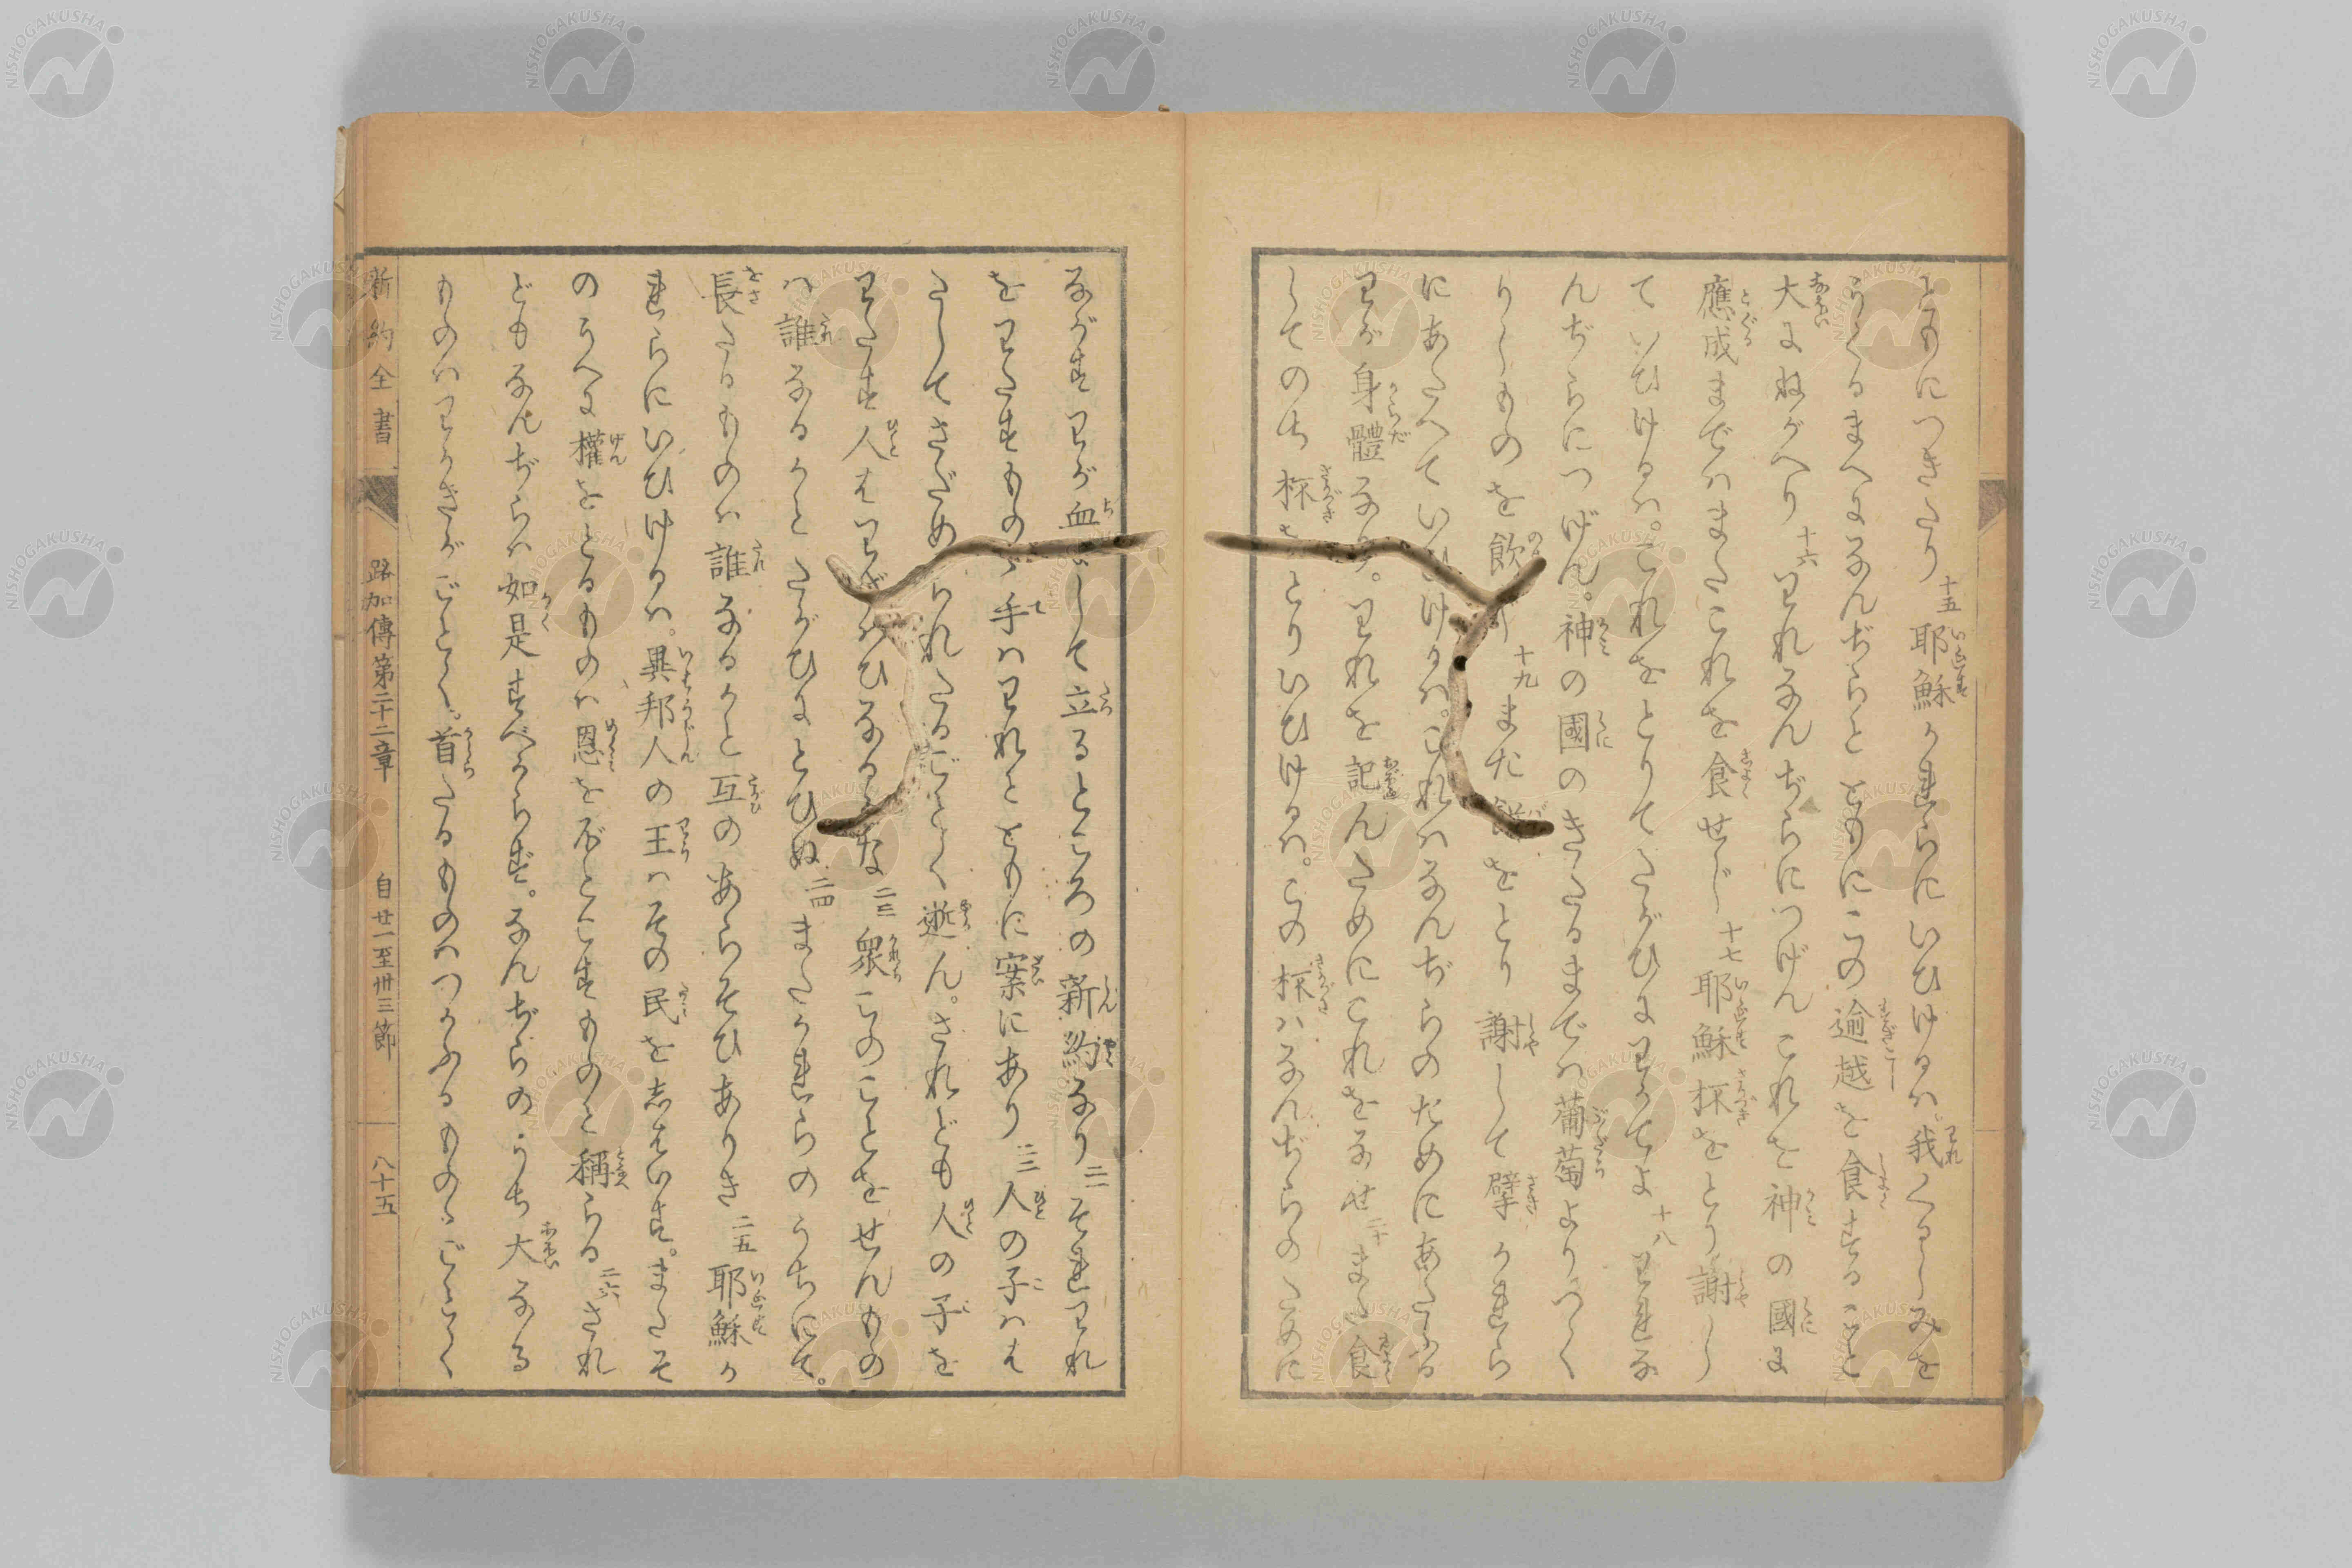 ともにつきたり 十五 耶穌かれらにいひけるハ我くるしみを
うくるまへになんぢらとともにこの逾越を食することを
大にねがへり 十六 われなんぢらにつげんこれを神の國に
應成までハまたこれを食せじ 十七 耶穌杯をとり謝し
ていひけるハ。これをとりてたがひにわかてよ 十八 われな
んぢらにつげん。神の國のきたるまでハ葡萄よりつく
りしものを飲 十九 また をとり謝して擘かれら
にあたへていひけるハ。これハなんぢらのためにあたふる
わが身體なり。われを記んためにこれをなせ 二十 また食
してのち杯をとりいひけるハ。この杯ハなんぢらのために
ながすわが血 して立るところの新約なり 二一 それわれ
をわたすものゝ手ハわれとともに案にあり 二二 人の子ハは
たしてさだめられたるごとく逝ん。されども人の子を
わたす人はわざハひなるかな 二三 衆このことをせんもの
ハ誰なるかとたがひにとひぬ 二四 またかれらのうちにて。
長たるものハ誰なるかと互のあらそひありき 二五 耶穌か
れらにいひけるハ。異邦人の王ハその民を志はいす。またそ
のうへに權をとるものハ恩をほどこすものと稱らる 二六 され
どもなんぢらハ如是すべからず。なんぢらのうち大なる
ものハわかきがごとく。首たるものハつかふるものゝごとく
新約全書 路加傳第二十二章 自廿一至卅三節 八十五